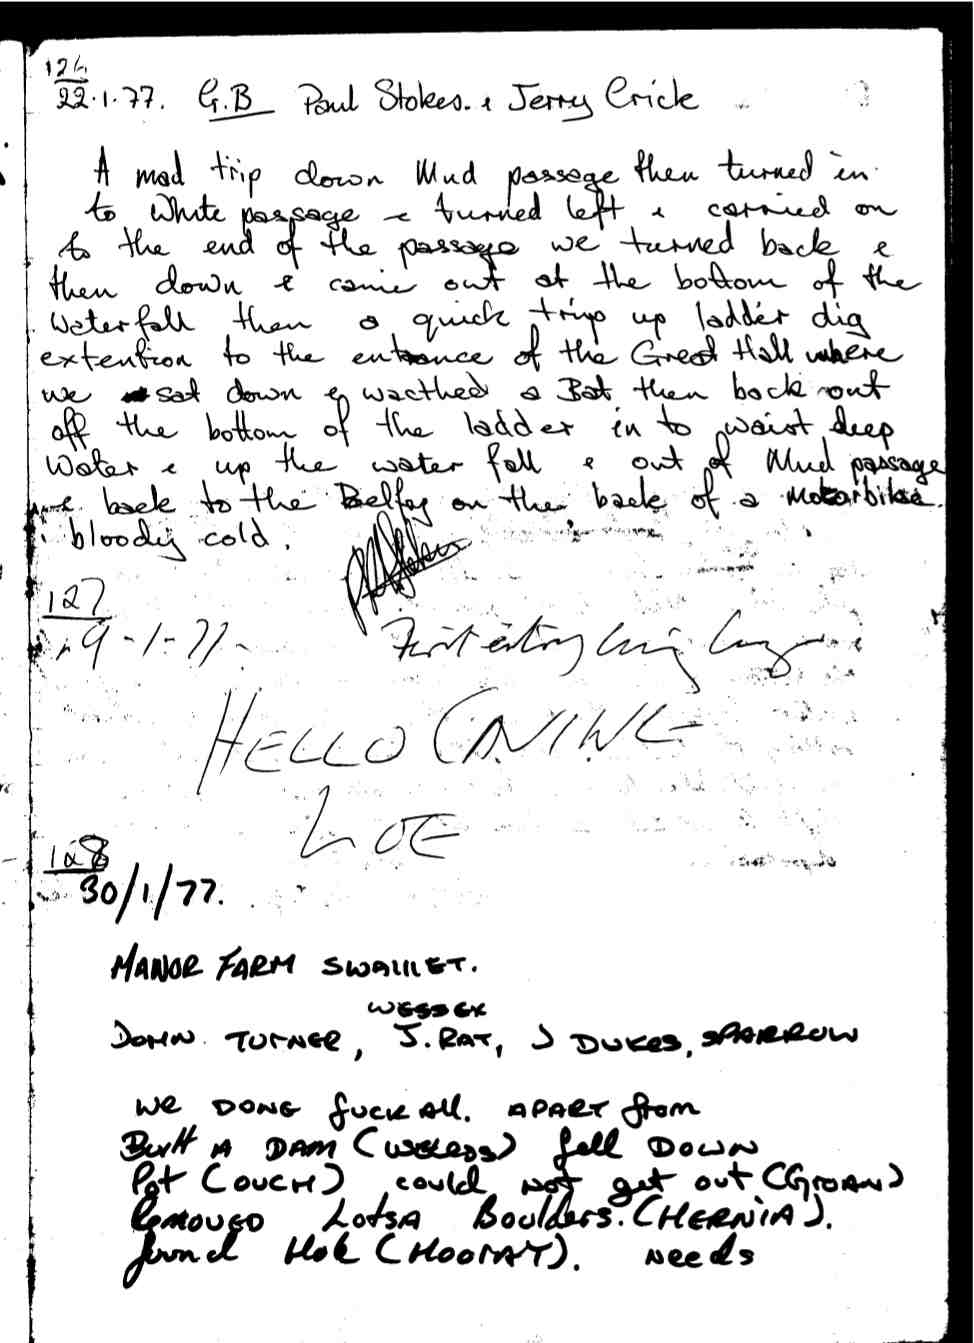 126
22.1.77. G.B Paul Stokes. & Jerry Crick
A mad trip down Mud passage then turned in
to White passage & turned left & carried on
to the end of the passage we turned back &
then down & came out at the bottom of the
Waterfall then a quick trip up ladder dig
extention to the entrance of the Great Hall where
we sat down & wacthed a Bat then back out
off the bottom of the ladder in to waist deep
Water & up the water fall & out of Mud passage
& back to the Belfry on the back of a Motorbike
bloody cold.
127
9-1-77.
HELLO
128
30/1/77.
MANOR FARM SWALLET.
WESSEX
JOHN TURNER, J. RAT, J DUKES, SPARROW
WE DONE fuck All. APART from
Built A DAM (USELESS) fell DOWN
Pot (OUCH) could not get out (GROAN)
REMOVED LOTSA Boulders. (HERNIA).
found Hole (HOORAY). Needs